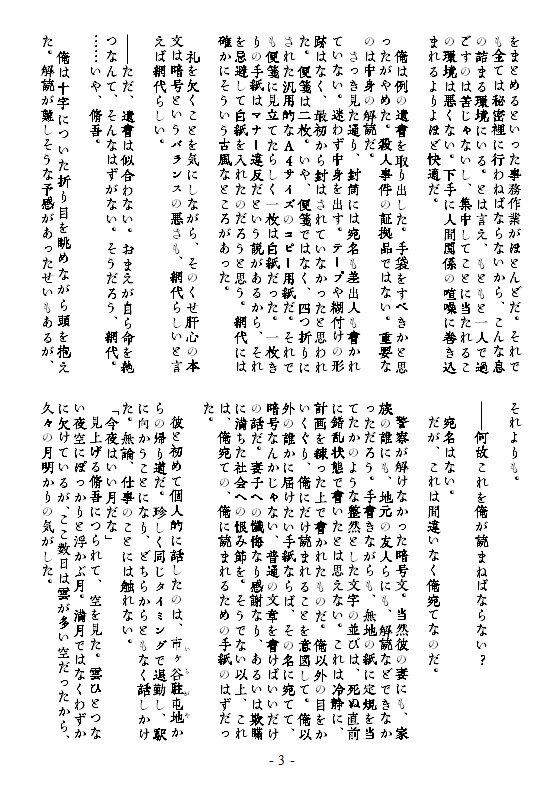 をまとめるといった事務作業がほとんどだ。それで
も全ては秘密裡に行わねばならないから、こんな息
の詰まる環境にいる。とは言え、もともと一人で過
ごすのは苦じゃないし、集中してことに当たれるこ
の環境は悪くない。下手に人間関係の喧噪に巻き込
まれるよりよほど快適だ。
俺は例の遺書を取り出した。手袋をすべきかと思
ったがやめた。殺人事件の証拠品ではない。重要な
のは中身の解読だ。
さっき見た通り、封筒には宛名も差出人も書かれ
ていない。迷わず中身を出す。テープや糊付けの形
跡はなく、最初から封はされていなかったと思われ
た。便箋は二枚。いや、便箋ではなく、四つ折りに
された汎用的なA4サイズのコピー用紙だ。それで
も便箋に見立てたらしく一枚は白紙だった。一枚き
りの手紙はマナー違反だという説があるから、それ
を忌避して白紙を入れたのだろうと思う。網代には
確かにそういう古風なところがあった。
礼を欠くことを気にしながら、そのくせ肝心の本
文は暗号というバランスの悪さも、網代らしいと言
えば網代らしい。
――ただ、遺書は似合わない。おまえが自ら命を絶
つなんて、そんなはずがない。そうだろう、網代
……いや、脩吾。
俺は十字についた折り目を眺めながら頭を抱え
た。解読が難しそうな予感があったせいもあるが、
それよりも。
――何故これを俺が読まねばならない？
宛名はない。
だが、これは間違いなく俺宛てなのだ。
警察が解けなかった暗号文、当然彼の妻にも、家
族の誰にも、地元の友人らにも、解読などできなか
っただろう。手書きながらも、無地の紙に定規を当
てたかのような整然とした文字の並びは、死ぬ直前
に錯乱状態で書いたとは思えない。これは冷静に、
計画を練った上で書かれたものだ。俺以外の目をか
いくぐり、俺にだけ読まれることを意図して。俺以
外の誰かに届けたい手紙ならば、その名に宛てて、
暗号なんかじゃない、普通の文章を書けばいいだけ
の話だ。妻子への懺悔なり感謝なり、あるいは欺瞞
に満ちた社会への恨み節を。そうでない以上、これ
は、俺宛ての、俺に読まれるための手紙のはずだっ
た。
彼と初めて個人的に話したのは、市ヶ谷駐屯地か
らの帰り道だ。珍しく同じタイミングで退勤し、駅
に向かうことになり、どちらからともなく話しかけ
た。無論、仕事のことには触れない。
「今夜はいい月だな」
見上げる脩吾につられて、空を見た。雲ひとつな
い夜空にぽっかりと浮かぶ月。満月ではなくわずか
に欠けているが、ここ数日は雲が多い空だったから、
久々の月明かりの気がした。
- 3 -